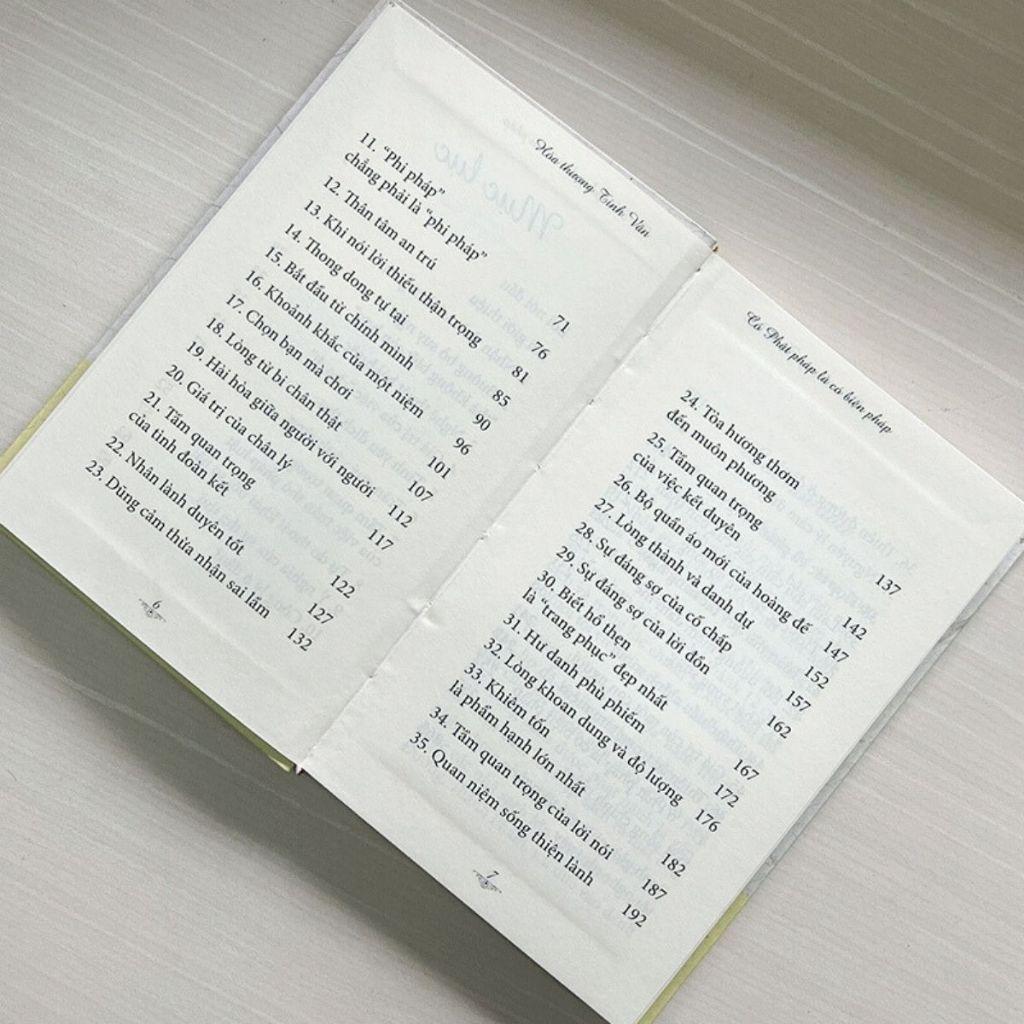 Hòa thượng Tinh Vân
11. “Phi pháp”
chẳng phải là “phi pháp” 71
12. Thân tâm an trú 76
13. Khi nói lời thiếu thận trọng 81
14. Thong dong tự tại 85
15. Bắt đầu từ chính mình 90
16. Khoảnh khắc của một niệm 96
17. Chọn bạn mà chơi 101
18. Lòng từ bi chân thật 107
19. Hài hòa giữa người với người 112
20. Giá trị của chân lý 117
21. Tầm quan trọng
của tinh đoàn kết 122
22. Nhân lành duyên tốt 127
23. Dũng cảm thừa nhận sai lầm 132
6
Có Phật pháp là có biện pháp
24. Tỏa hương thơm
đến muôn phương 137
25. Tầm quan trọng
của việc kết duyên 142
26. Bộ quần áo mới của hoàng đế 147
27. Lòng thành và danh dự 152
28. Sự đáng sợ của cố chấp 157
29. Sự đáng sợ của lời đồn 162
30. Biết hổ thẹn
là “trang phục” đẹp nhất 167
31. Hư danh phù phiếm 172
32. Lòng khoan dung và độ lượng 176
33. Khiêm tốn
là phẩm hạnh lớn nhất 182
34. Tầm quan trọng của lời nói 187
35. Quan niệm sống thiện lành 192
7